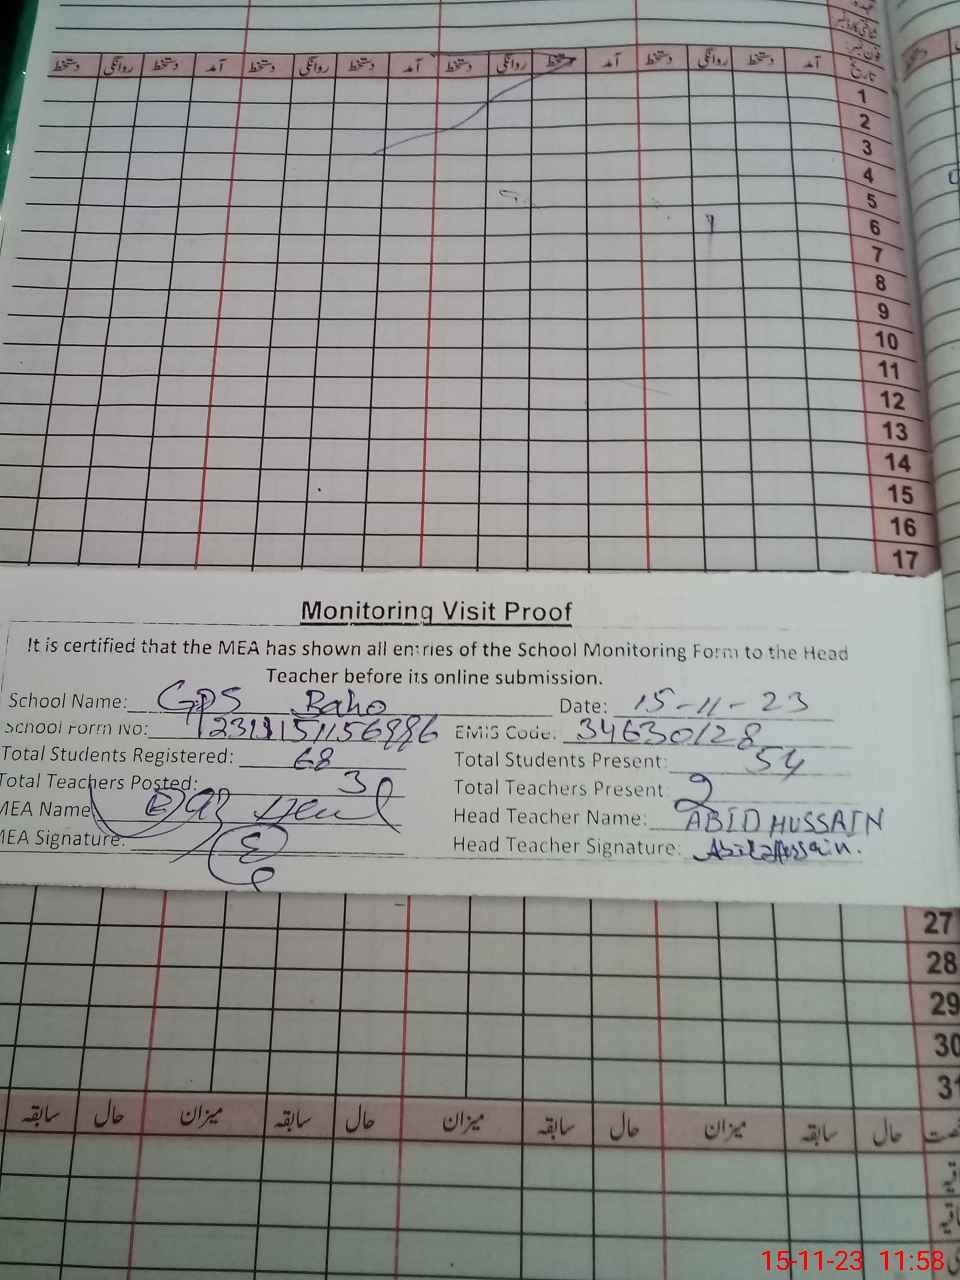 تاریخ آمد دستخط روانگی دستخط آمد دستخط روانگی دستخط آمد دستخط روانگی دستخط آمد دستخط روانگی دستخط
1
2
3
4
5
6
7
8
9
10
11
12
13
14
15
16
17
Monitoring Visit Proof
It is certified that the MEA has shown all entries of the School Monitoring Form to the Head
Teacher before its online submission.
School Name: GPS Baho Date: 15-11-23
School Form No: EMIS Code: 34630128
Total Students Registered: 68 Total Students Present: 54
Total Teachers Posted: 3 Total Teachers Present: 2
MEA Name Head Teacher Name: ABID HUSSAIN
MEA Signature: Head Teacher Signature: Abid Hussain.
27
28
29
30
31
حال سابقہ میزان حال سابقہ میزان حال سابقہ میزان حال سابقہ
15-11-23 11:58